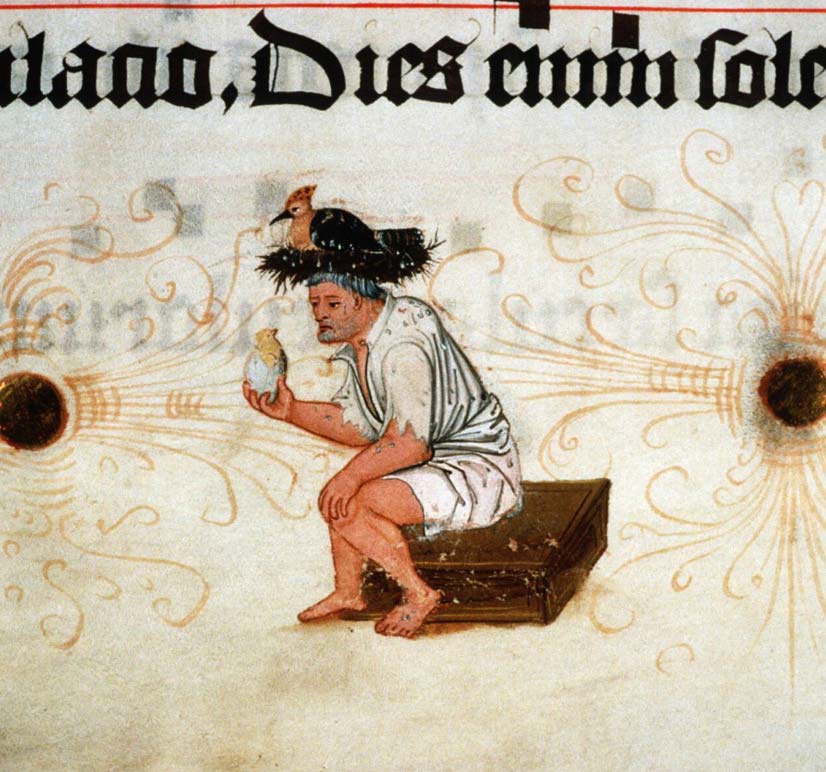 ilatio, Dies enim sole